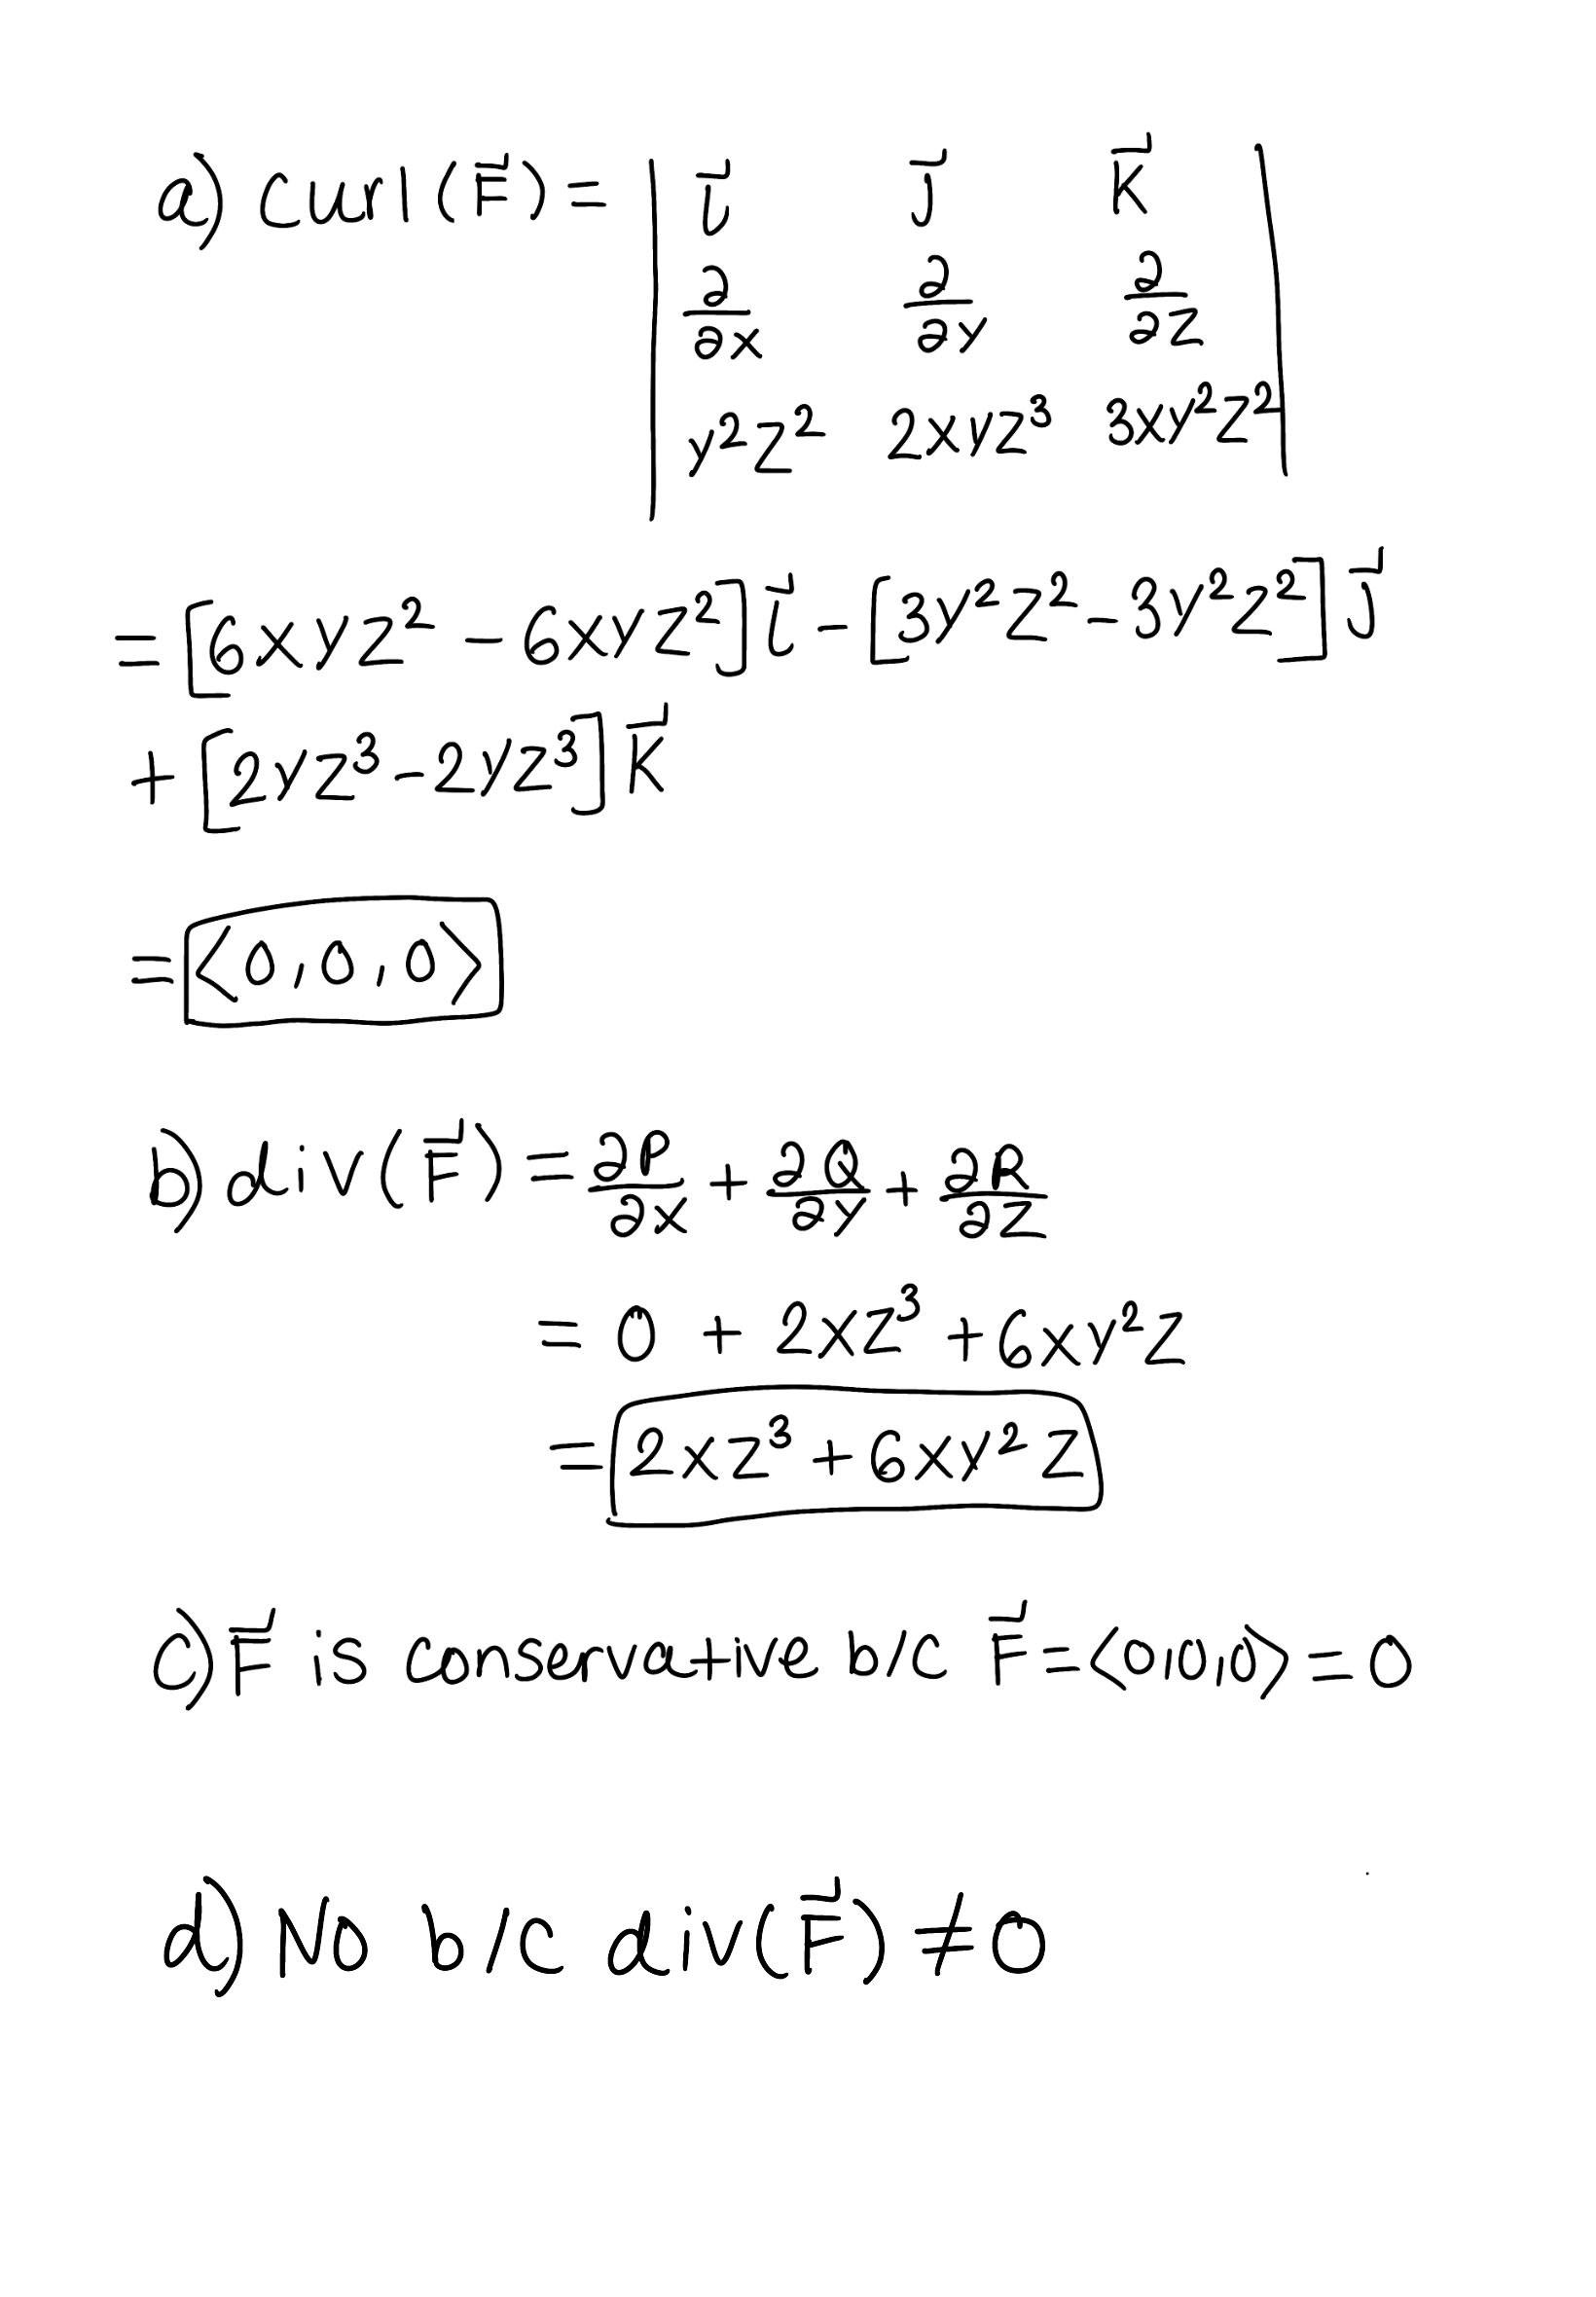 a) curl(F⃗) = | i⃗ j⃗ k⃗ |
| ∂/∂x ∂/∂y ∂/∂z |
| y²z² 2xyz³ 3xy²z² |
= [6xyz² - 6xyz²] i⃗ - [3y²z² - 3y²z²] j⃗
+ [2yz³ - 2yz³] k⃗
= ⟨0,0,0⟩
b) div(F⃗) = ∂P/∂x + ∂Q/∂y + ∂R/∂z
= 0 + 2xz³ + 6xy²z
= 2xz³ + 6xy²z
c) F⃗ is conservative b/c F⃗ = ⟨0,0,0⟩ = 0
d) No b/c div(F⃗) ≠ 0